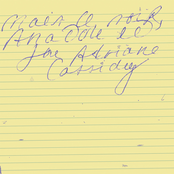 mais ce soir,
Anatole et
Joe Adriano
Cassidy